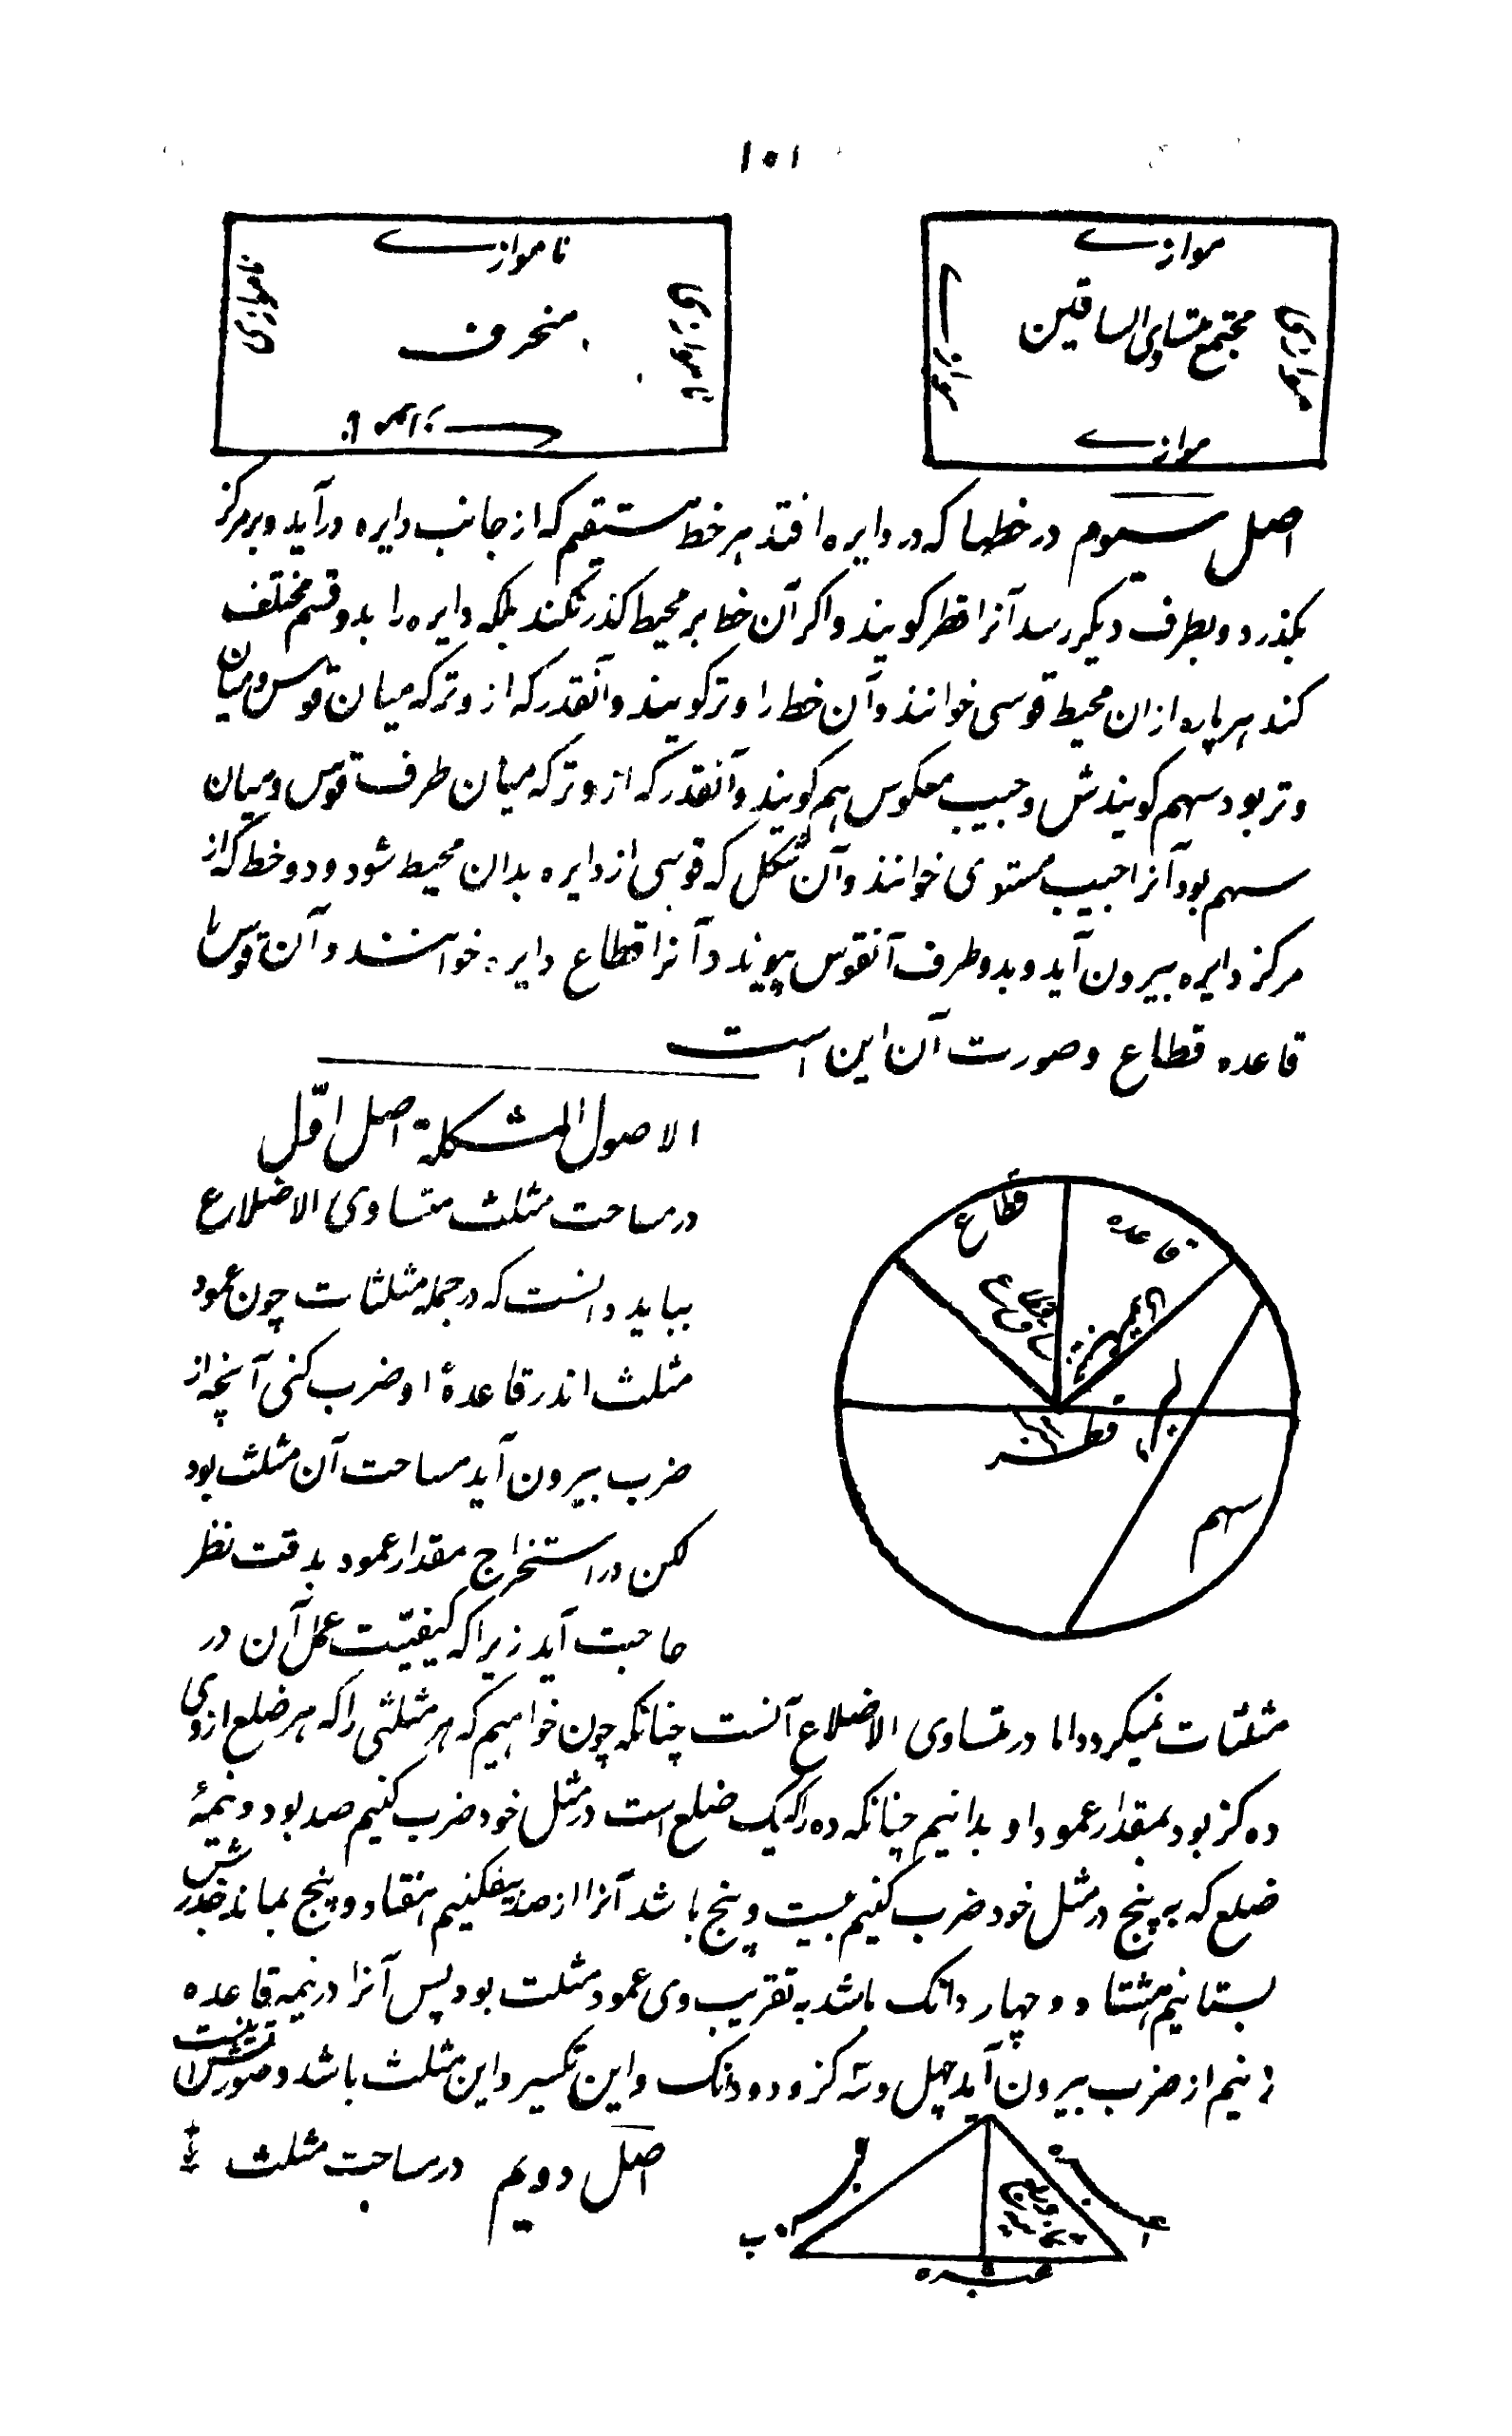 ١٥١
موازے
مجتمع متساوی الساقین
موازی
موازے
موازے
ناموازے
منحرف
ناموازی
ناموازی
ناموازے
اصل سیوم در خطها که در دایره افتد هر خط مستقیم که از جانب دایره درآید و بر مرکز
بکذرد و بطرف دیکر رسد آنرا قطر کویند و اکر آن خط بر محیط کذر نکند بلکه دایره را بدو قسم مختلف
کند هر پاره ازان محیط قوسی خوانند و آن خط را وتر کویند و آنقدر که از وتر که میان قوس و میان
وتر بود سهم کویندش و جیب معکوس هم کویند و آنقدر که از وتر که میان طرف قوس و میان
سهم بود آنرا جیب مستوی خوانند و آن شکل که قوسی از دایره بدان محیط شود و دو خط که از
مرکز دایره بیرون آید و بدو طرف آنقوس پیوند و آنرا قطاع دایره خوانند و آن قوس را
قاعده قطاع و صورت آن این است
الاصول المشکلة اصل اوّل
در مساحت مثلث متساوی الاضلاع
بباید دانست که در جمله مثلثات چون عمود
مثلث اندر قاعدهٔ او ضرب کنی آنچه از
ضرب بیرون آید مساحت آن مثلث بود
لکن در استخراج مقدار عمود بدقت نظر
حاجت آید زیرا که کیفیّت عمل آن در
قطاع
قاعده
قطر
وتر
سهم
مثلثات نمیکردد اما در متساوی الاضلاع آنست چنانکه چون خواهیم که هر مثلثی را که هر ضلع ازوی
ده کز بود بمقدار عمود او بدانیم چنانکه ده را که یک ضلع است در مثل خود ضرب کنیم صد بود و نیمهٔ
ضلع که پنج در مثل خود ضرب کنیم بیست و پنج باشد آنرا از صد بیفکنیم هفتاد و پنج بماند جذرش
بستانیم هشتاد و چهار دانک باشد به تقریب وی عمود مثلث بود پس آنرا در نیمه قاعده
زنیم از ضرب بیرون آید چهل و سّه کز و دو دانک و این تکسیر و این مثلث باشد و صورتش اینست
اصل دویم در مساحت مثلث